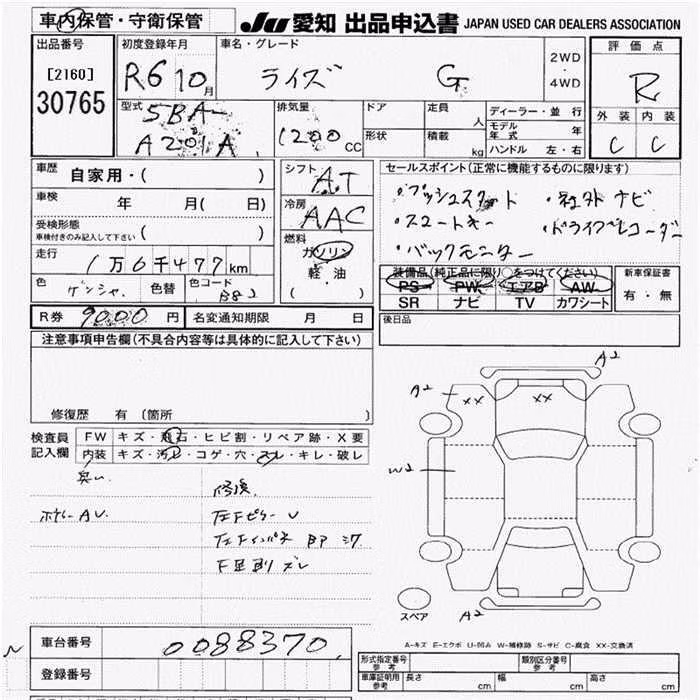 車内保管・守衛保管
JU 愛知 出品申込書 JAPAN USED CAR DEALERS ASSOCIATION
出品番号
[2160]
30765
初度登録年月
R6 10月
車名・グレード
ライズ G
2WD
・
4WD
評価点
R
外装 内装
C C
型式
5BA-
A201A
排気量
1200 CC
ドア
定員 人
形状
積載 kg
ディーラー・並 行
モデル年式 年
ハンドル 左・右
車歴
自家用・( )
車検 年 月( 日)
受検形態
車検付きのみ記入して下さい ( )
走行
1万6千477km
色 ゲンシャ. 色替 色コード
シフト
AT
冷房
AAC
燃料
ガソリン
軽・油
( )
セールスポイント(正常に機能するものに限ります)
・プッシュスタート ・社外ナビ
・スマートキー ・ドライブレコーダー
・バックモニター
装備品(純正品に限り○をつけてください)
PS PW エアB AW
SR ナビ TV カワシート
新車保証書
有・無
R券 9000 円 名変通知期限 月 日
後日品
注意事項申告欄(不具合内容等は具体的に記入して下さい)
修復歴 有 〔箇所 〕
検査員
記入欄
FW キズ・飛石・ヒビ割・リペア跡・X要
内装 キズ・汚レ・コゲ・穴・スレ・キレ・破レ
臭い
修復.
AU.
左Fピラー U
左Fインパネ
下
ズレ
A2
A2
XX
XX
W2
A2
スペア
A-キズ E-エクボ U-凹み W-補修跡 S-サビ C-腐食 XX-交換済
車台番号 0088370
登録番号
形式指定番号
参考
類別区分番号
参考
車庫証明用
参考
長さ cm 幅 cm 高さ cm